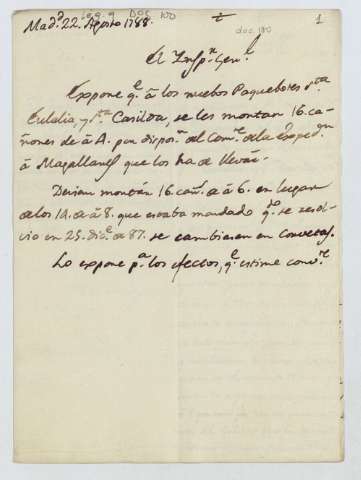 Mad.d 22. Agosto 1788.
99-9 Doc 100
doc. 100
1
El Insp.r Gen.l
Expone q.e à los nuebos Paquebotes S.ta
Eulalia, y S.ta Casilda, se les montan 16. ca-
ñones de à 4. por dispos.n del Com.te de la Exped.n
à Magallanes que los ha de llevar.
Devian montar 16. cañ.s de à 6. en lugar
de los 14. de à 8. que estaba mandado q.do se resol-
vio en 25. Dic.e de 87. se cambiasen en Corvetas.
Lo expone p.a los efectos, q.e estime conv.te